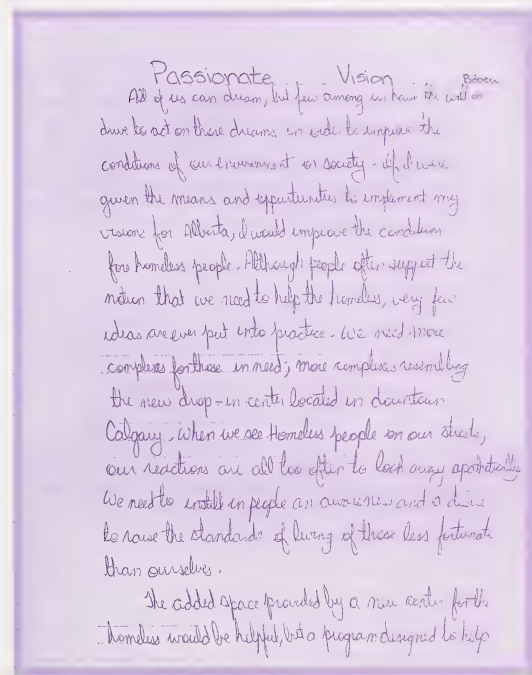 Passionate Vision
All of us can dream, but few among us have the will or
drive to act on those dreams in order to improve the
conditions of our environment or society. If I were
given the means and opportunities to implement my
visions for Alberta, I would improve the conditions
for homeless people. Although people often support the
notion that we need to help the homeless, very few
ideas are ever put into practice. We need more
complexes for those in need; more complexes resembling
the new drop-in center located in downtown
Calgary. When we see Homeless people on our streets,
our reactions are all too often to look away apathetically.
We need to instill in people an awareness and a drive
to raise the standards of living of those less fortunate
than ourselves.
The added space provided by a new center for the
homeless would be helpful, but a program designed to help